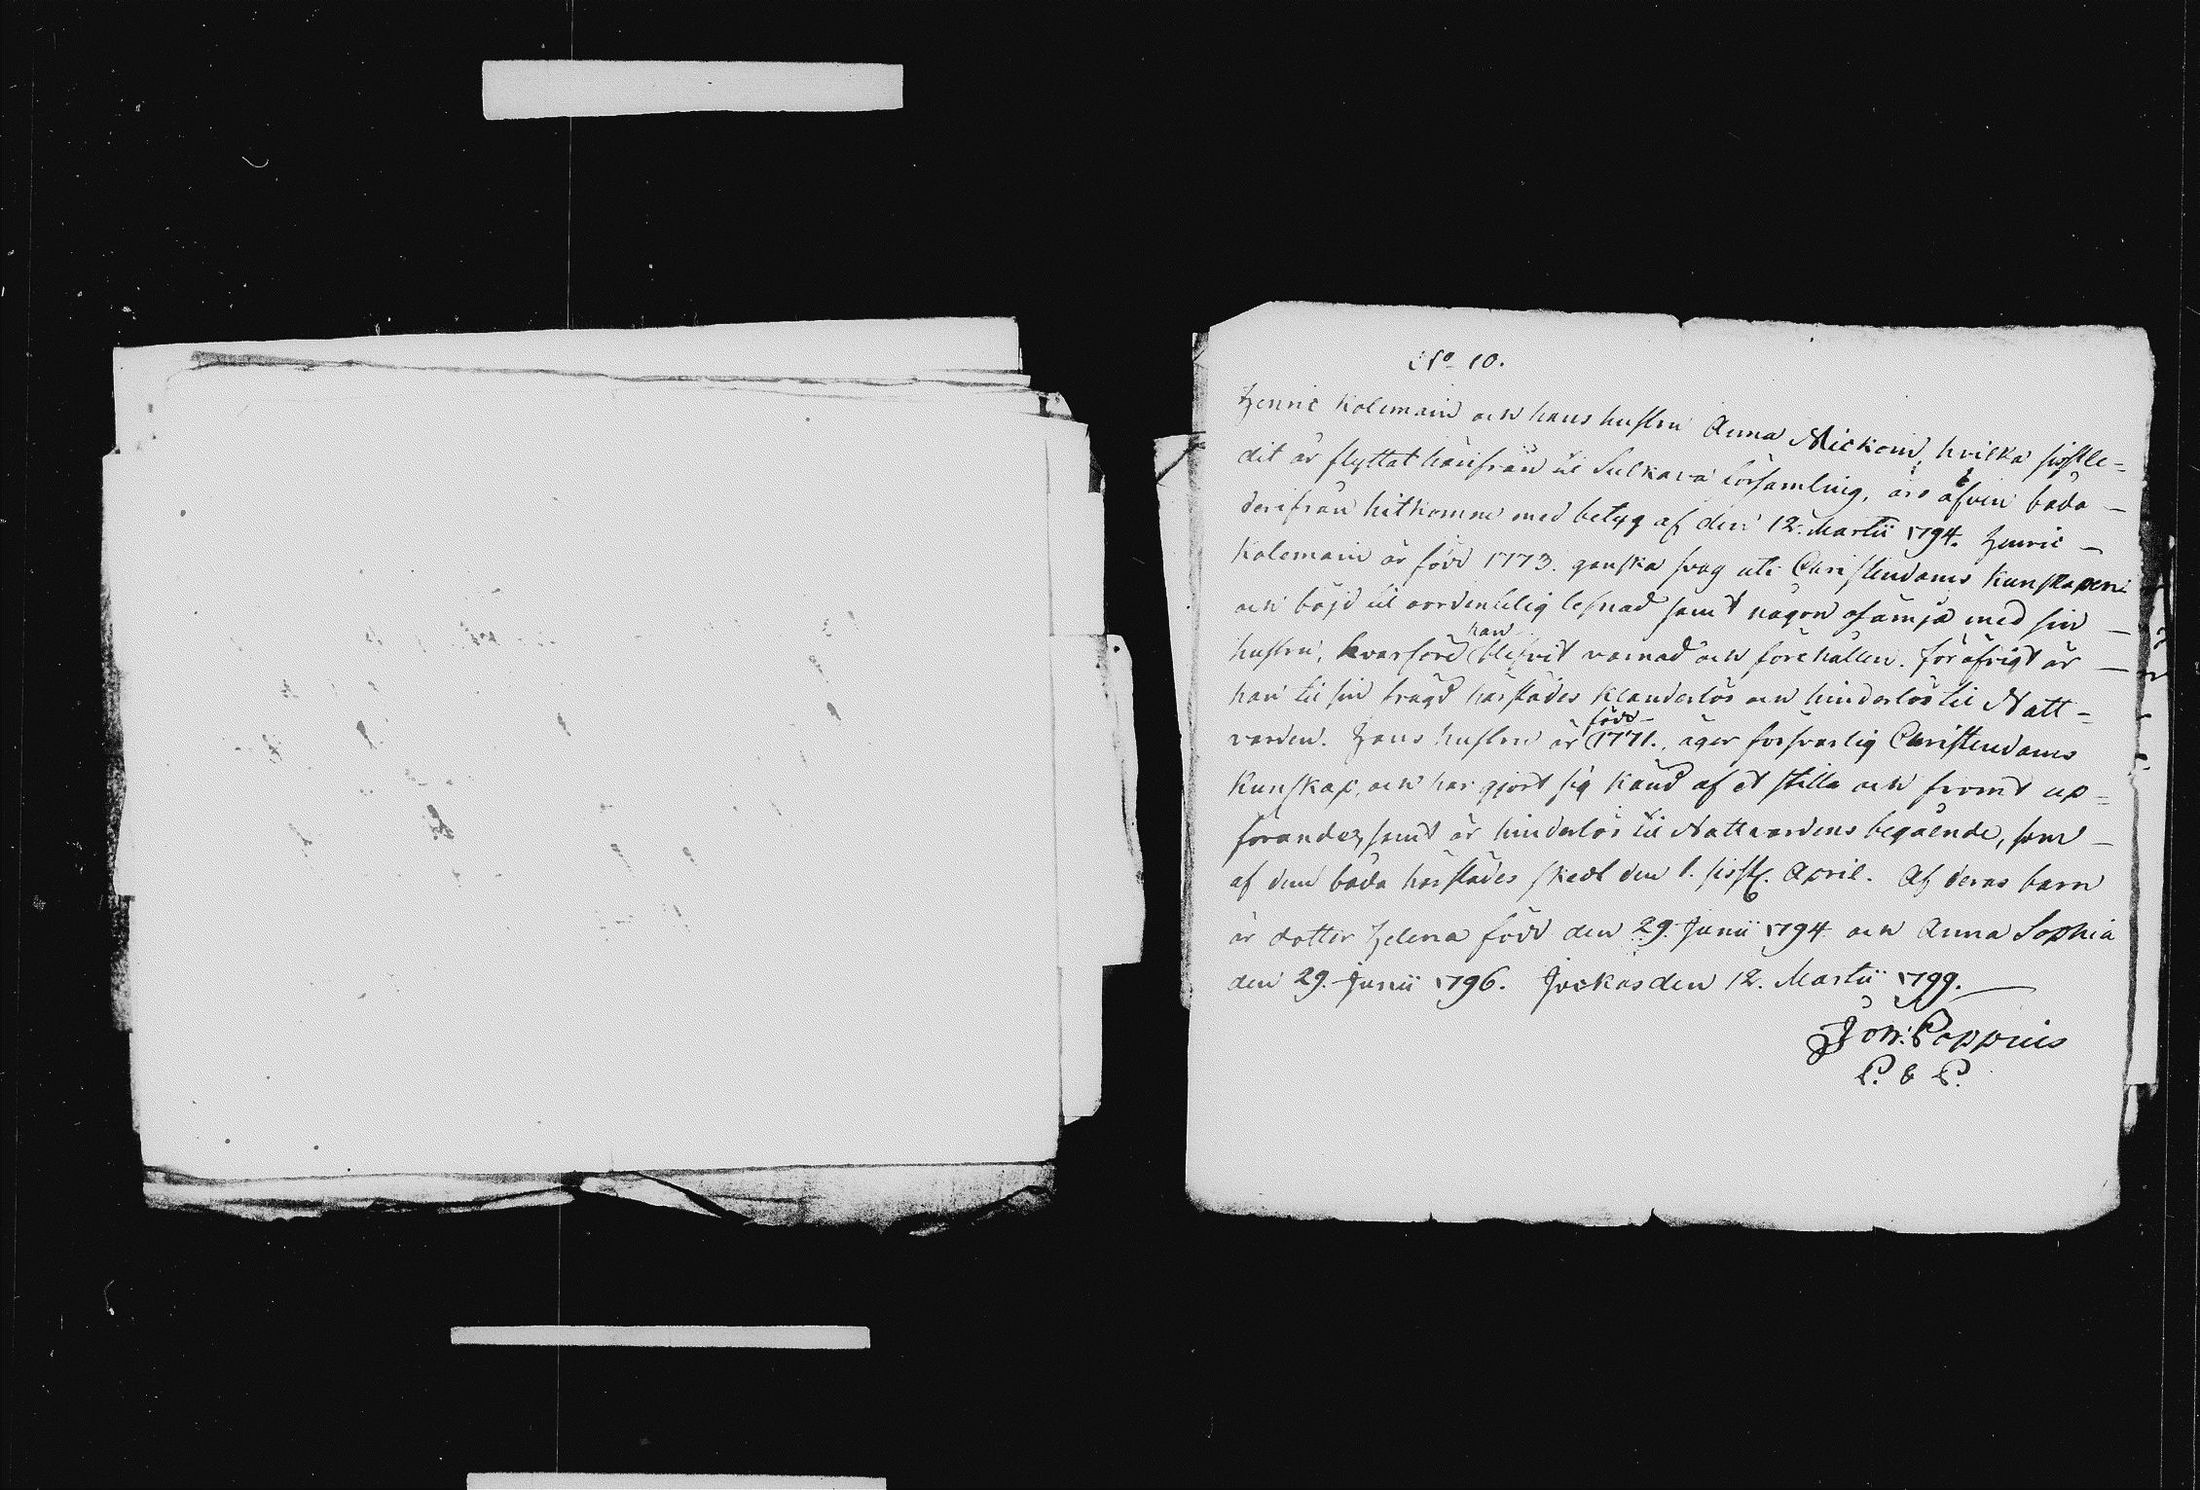 No 10.
Henric Kolemain och hans hustru Anna Mickoin, hvilka sistle=
dit är flyttat härifrån til Sulkava församling, äro äfven båda
derifrån hitkomne med betyg af den 12. Martii 1794. Henric
Kolemain är född 1773. ganska svag uti Christendoms kunskapen
och böjd til oordentelig lefnad samt någon osämja med sin
hustru, hvarföre han blifvit varnad och förehållen. för öfrigt är
han til sin frägd härstädes klanderlös och hinderlös til Natt=
varden. Hans hustru är född 1771., äger försvarlig Christendoms
kunskap, och har gjort sig känd af et stilla och fromt up=
förande, samt är hinderlös til Nattvardens begående, som
af dem båda härstädes skedt den 1. sistl. April. Af deras barn
är dotter Helena född den 29. Junii 1794 och Anna Sophia
den 29. Junii 1796. Jockas den 12. Martii 1799.
Joh: Poppius
P. & P.